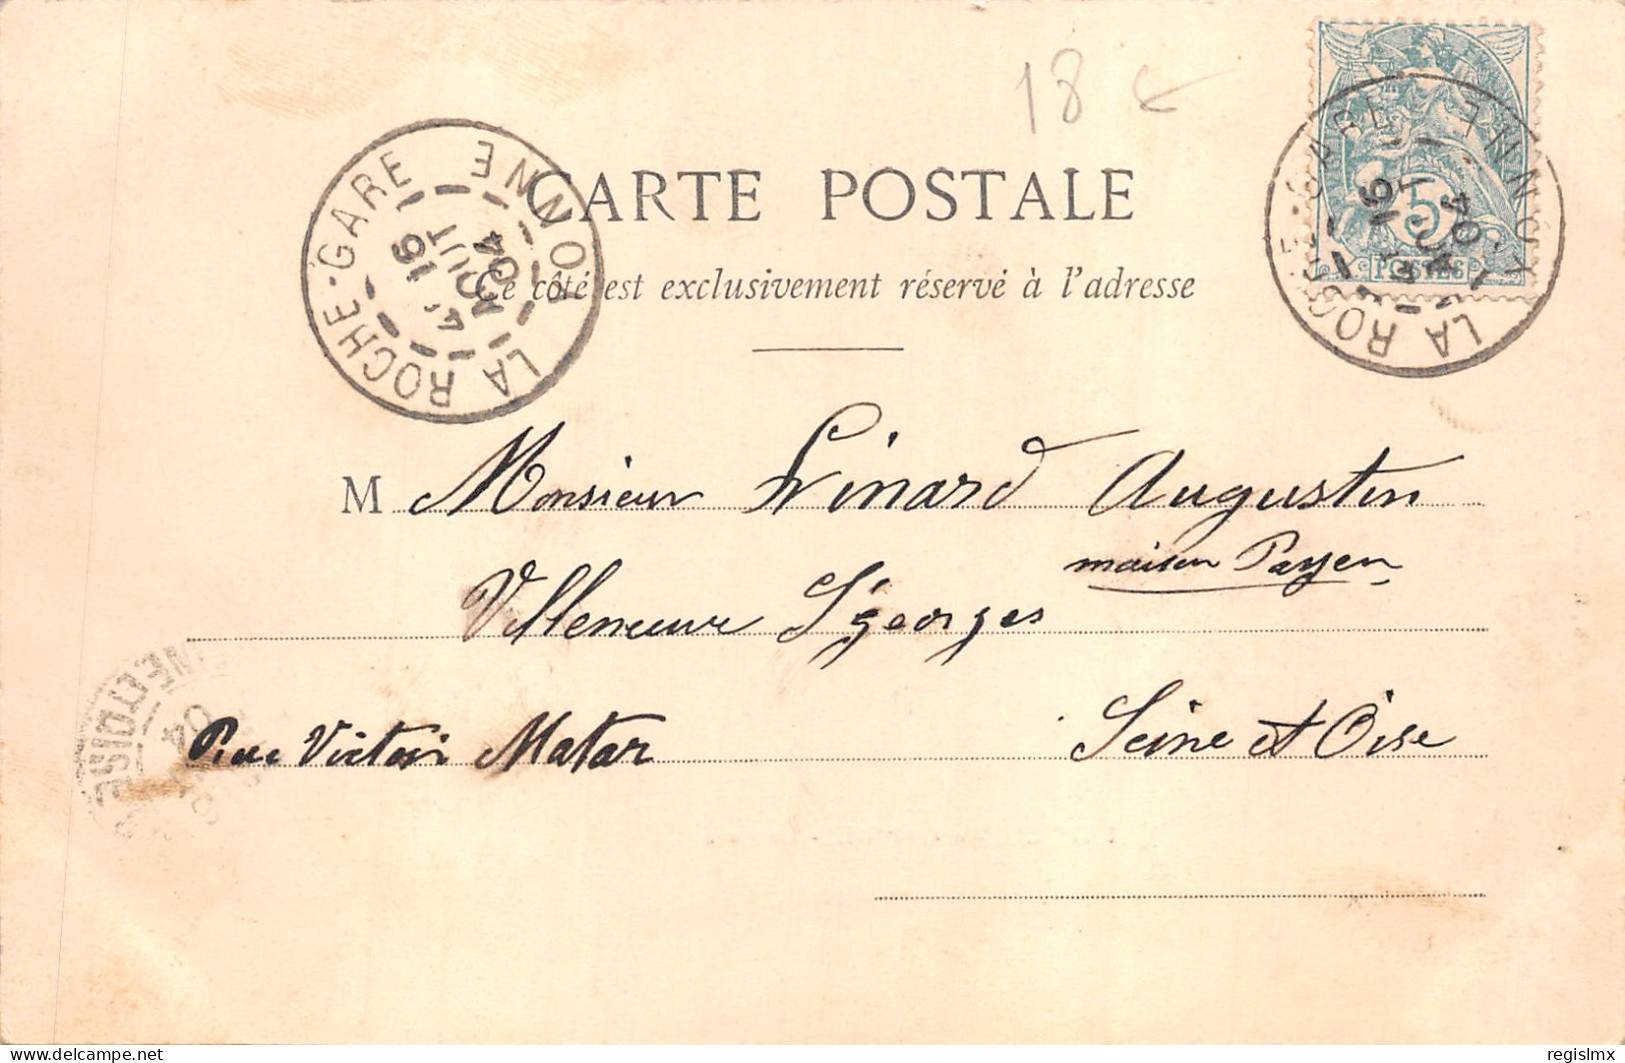 18 €
CARTE POSTALE
Ce côté est exclusivement réservé à l'adresse
LA ROCHE-GARE YONNE
16
4 AOUT
04
LA ROCHE-GARE YONNE
16
4
04
5
POSTES
M Monsieur Linard Augustin
maison Payen
Villeneuve St georges
Rue Victoir Matar
Seine et Oise
ET OISE
04
delcampe.net
regislmx